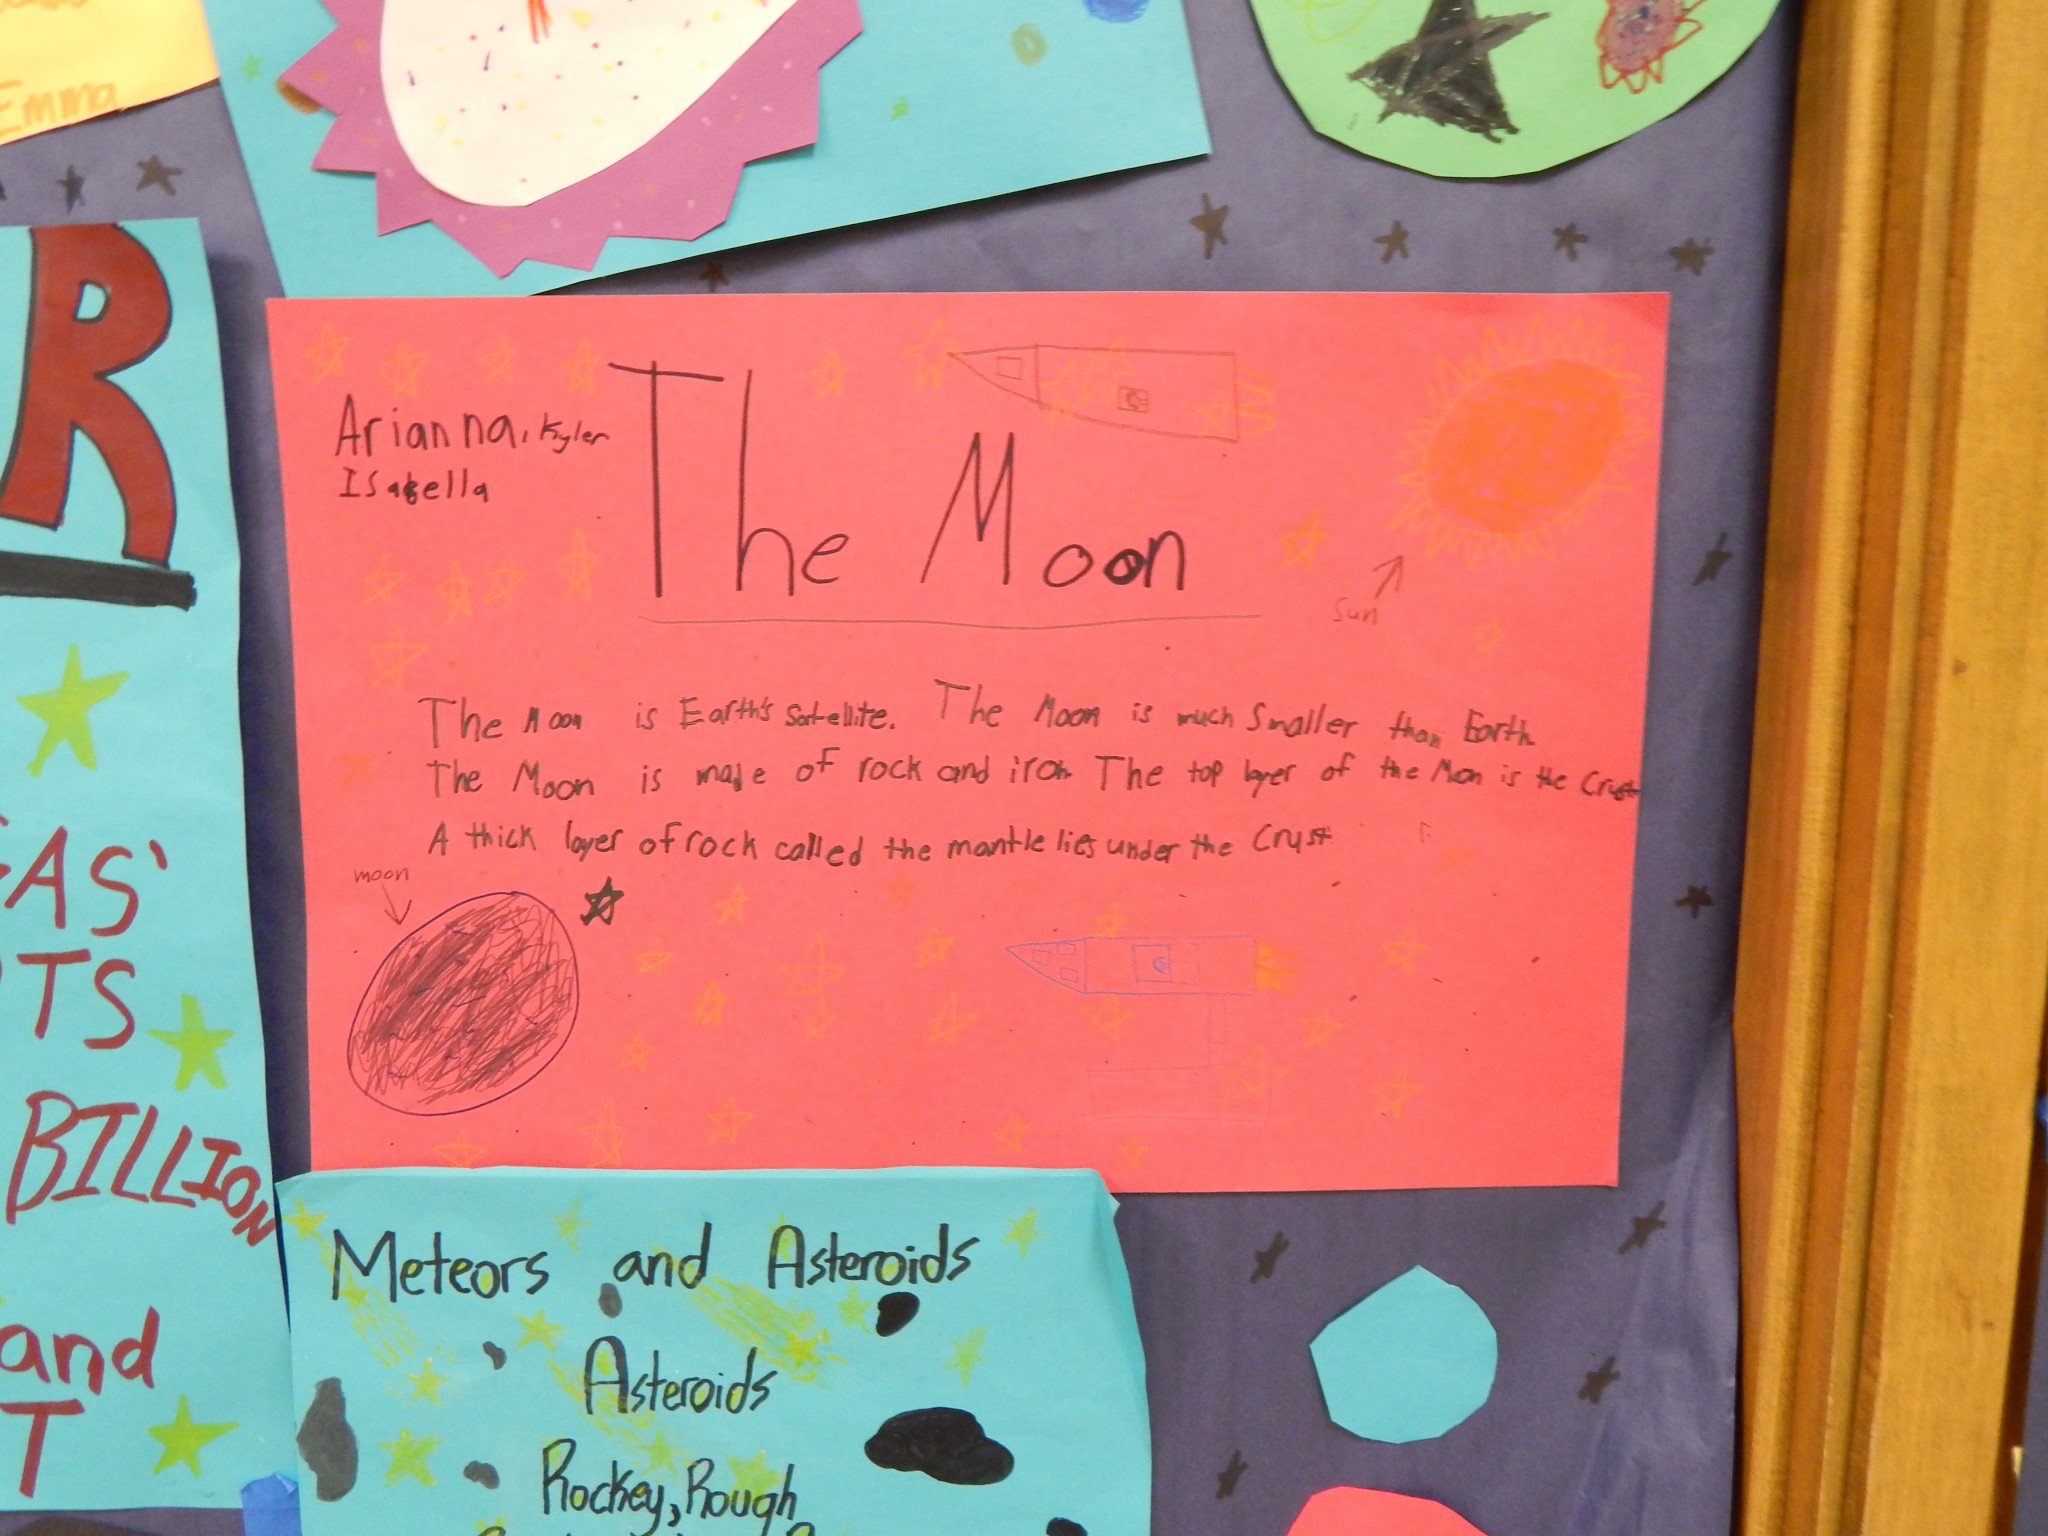 Emma
R
AS'
TS
BILLION
and
T
The Moon
Arianna, Kyler
Isabella
Sun
The Moon is Earth's Satellite. The Moon is much Smaller than Earth.
The Moon is made of rock and iron The top layer of the Moon is the Crust
A thick layer of rock called the mantle lies under the Crust
moon
Meteors and Asteroids
Asteroids
Rockey, Rough